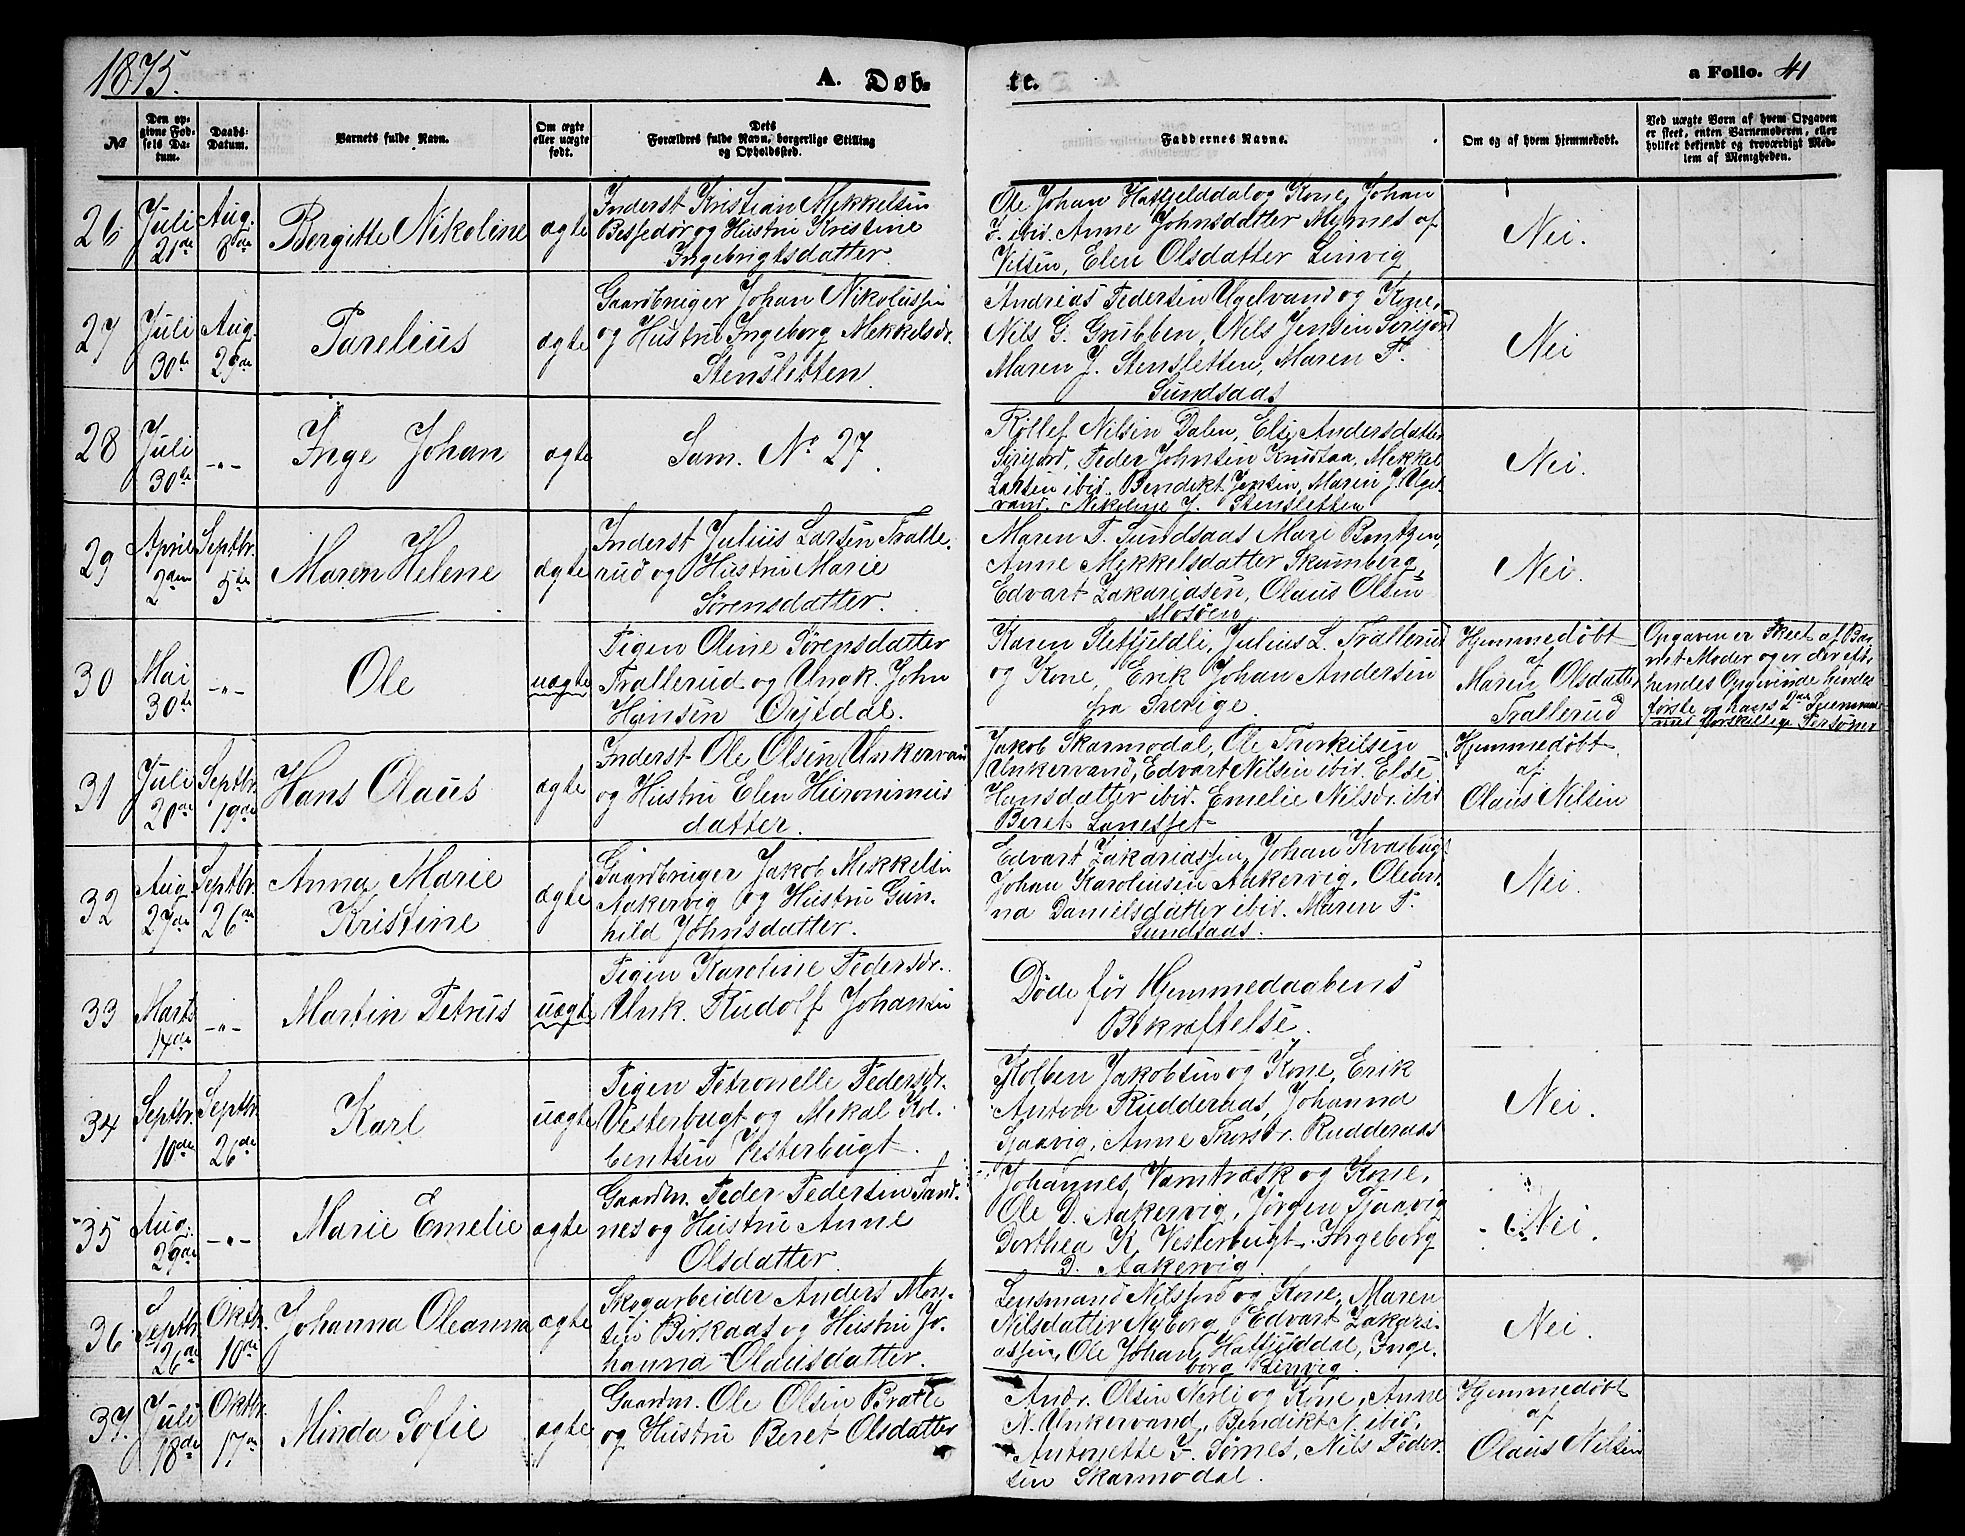 1875.
A. Døb-
te.
a Folio. 41
№
Den op-
givne Fød-
sels Da-
tum.
Daabs-
Datum.
Barnets fulde Navn.
Om ægte
eller uægte
født.
Dets
Forældres fulde Navn, borgerlige Stilling
og Opholdssted.
Faddernes Navne.
Om og af hvem hjemmedøbt.
Ved uægte Børn af hvem Opgaven
er skeet, enten Barnemoderen, eller
hvilket bekjendt og troværdigt Med-
lem af Menigheden.
26
Juli
21de
Aug.
8de
Bergitte Nikoline
ægte
Inderst Kristian Mekkelsen
Bessedør og Hustru Kristine
Ingebrigtsdatter.
Ole Johan Hatfjelddal og Kone, Johan
J. ibid. Anne Johnsdatter Mynes af
Vefsen, Elen Olsdatter Linvig
Nei.
27
Juli
30te
Aug.
29de
Parelius
ægte
Gaardbruger Johan Nikolussen
og Hustru Ingeborg Mekkelsdr.
Stensletten.
Andreas Pedersen Ugelvand og Kone,
Nils G. Grubben, Nils Jensen Sirijord
Maren J. Stensletten, Maren P.
Sundsaas
Nei
28
Juli
30te
-"-
Inge Johan
ægte
Sam. No 27.
Rollef Nilsen Dalen, Else Andersdatter
Sirijord, Peder Johnsen Knustaa, Mekkel
Larsen ibid. Bendikt Jensen, Maren J. Ugel-
vand, Nikoline J. Stensletten
Nei.
29
April
2den
Septbr.
5te
Maren Helene
ægte
Inderst Julius Larsen Tralle-
rud og Hustru Marie
Sørensdatter.
Maren P. Sundsaas Mari Bentzen,
Anne Mekkelsdatter Skumberg,
Edvart Zakariasen, Olaus Olsen
Mosøen
Nei.
30
Mai
30te
-"-
Ole
uægte
Pigen Oline Sørensdatter
Trallerud og Ungk. John
Hansen Oxfdal.
Karen Sletfjeldli, Julius L. Trallerud
og Kone, Erik Johan Andersen
fra Sverige.
Hjemmedøbt
af
Maren Olsdatter
Trallerud
Opgaven er skeet af Bar-
net Moder og er der efter
hendes Opgivende hendes
første og hans 2det Leiermaal
med forskjellige Personer
31
Juli
20de
Septbr.
19de
Hans Olaus
ægte
Inderst Ole Olsen Unkervand
og Hustru Elen Hieronimus
datter.
Jakob Skarmodal, Ole Thorkilsen
Unkervand, Edvart Nilsen ibid. Else
Hansdatter ibid. Emelie Nilsdr. ibid
Beret
Hjemmedøbt
af
Olaus Nilsen
32
Aug.
27de
Septbr.
26de
Anna Marie
Kristine
ægte
Gaardbruger Jakob Mekkelsen
Aakervig og Hustru Gun-
hild Johnsdatter.
Edvart Zakariassen, Johan Kvasbugt
Johan Karolinsen Aakervig. Olean-
na Danielsdatter ibid. Maren P.
Sundsaas.
Nei.
33
Marts
14de
-"-
Martin Petrus
uægte
Pigen Karoline Pedersdr.
Unk. Rudolf Johansen
Døde før Hjemmedaabens
Bekræftelse.
34
Septbr.
10de
Septbr.
26de
Karl
uægte
Pigen Petronelle Pedersdr.
Vesterbugt og Mekal Kol-
bentsen Vesterbugt.
Kolben Jakobsen og Kone, Erik
Anton Rudderaas, Johanna
Sjaavig, Anne Thorsdr. Rudderaas
Nei.
35
Aug.
29de
-"-
Marie Emelie
ægte
Gaardm. Peder Pedersen Sand-
nes og Hustru Anne
Olsdatter.
Johannes Vamtræsk og Kone,
Ole D. Aakervig, Jørgen Sjaavig
Dorthea K. Vesterbugt. Ingeborg
D. Aakervig.
Nei.
36
Septbr.
26de
Oktbr.
10de
Johanna Oleanna
ægte
Skogarbeider Anders Mon-
sen Birkaas og Hustru Jo-
hanna Olausdatter.
Lensmand Nilsjord og Kone, Maren
Nilsdatter Nyborg, Edvart Zakari-
assen, Ole Johan Hatfjelddal, Inge-
borg Linvig.
Nei.
37.
Juli
18de
Oktbr.
17de
Minda Sofie
ægte
Gaardm. Ole Olsen Bratli
og Hustru Beret Olsdatter
Andr. Olsen Nerli og Kone, Anne
N. Unkervand, Bendikt N. ibid.
Antonette P. Tømes, Nils Peder-
sen Skarmodal.
Hjemmedøbt
af
Olaus Nilsen